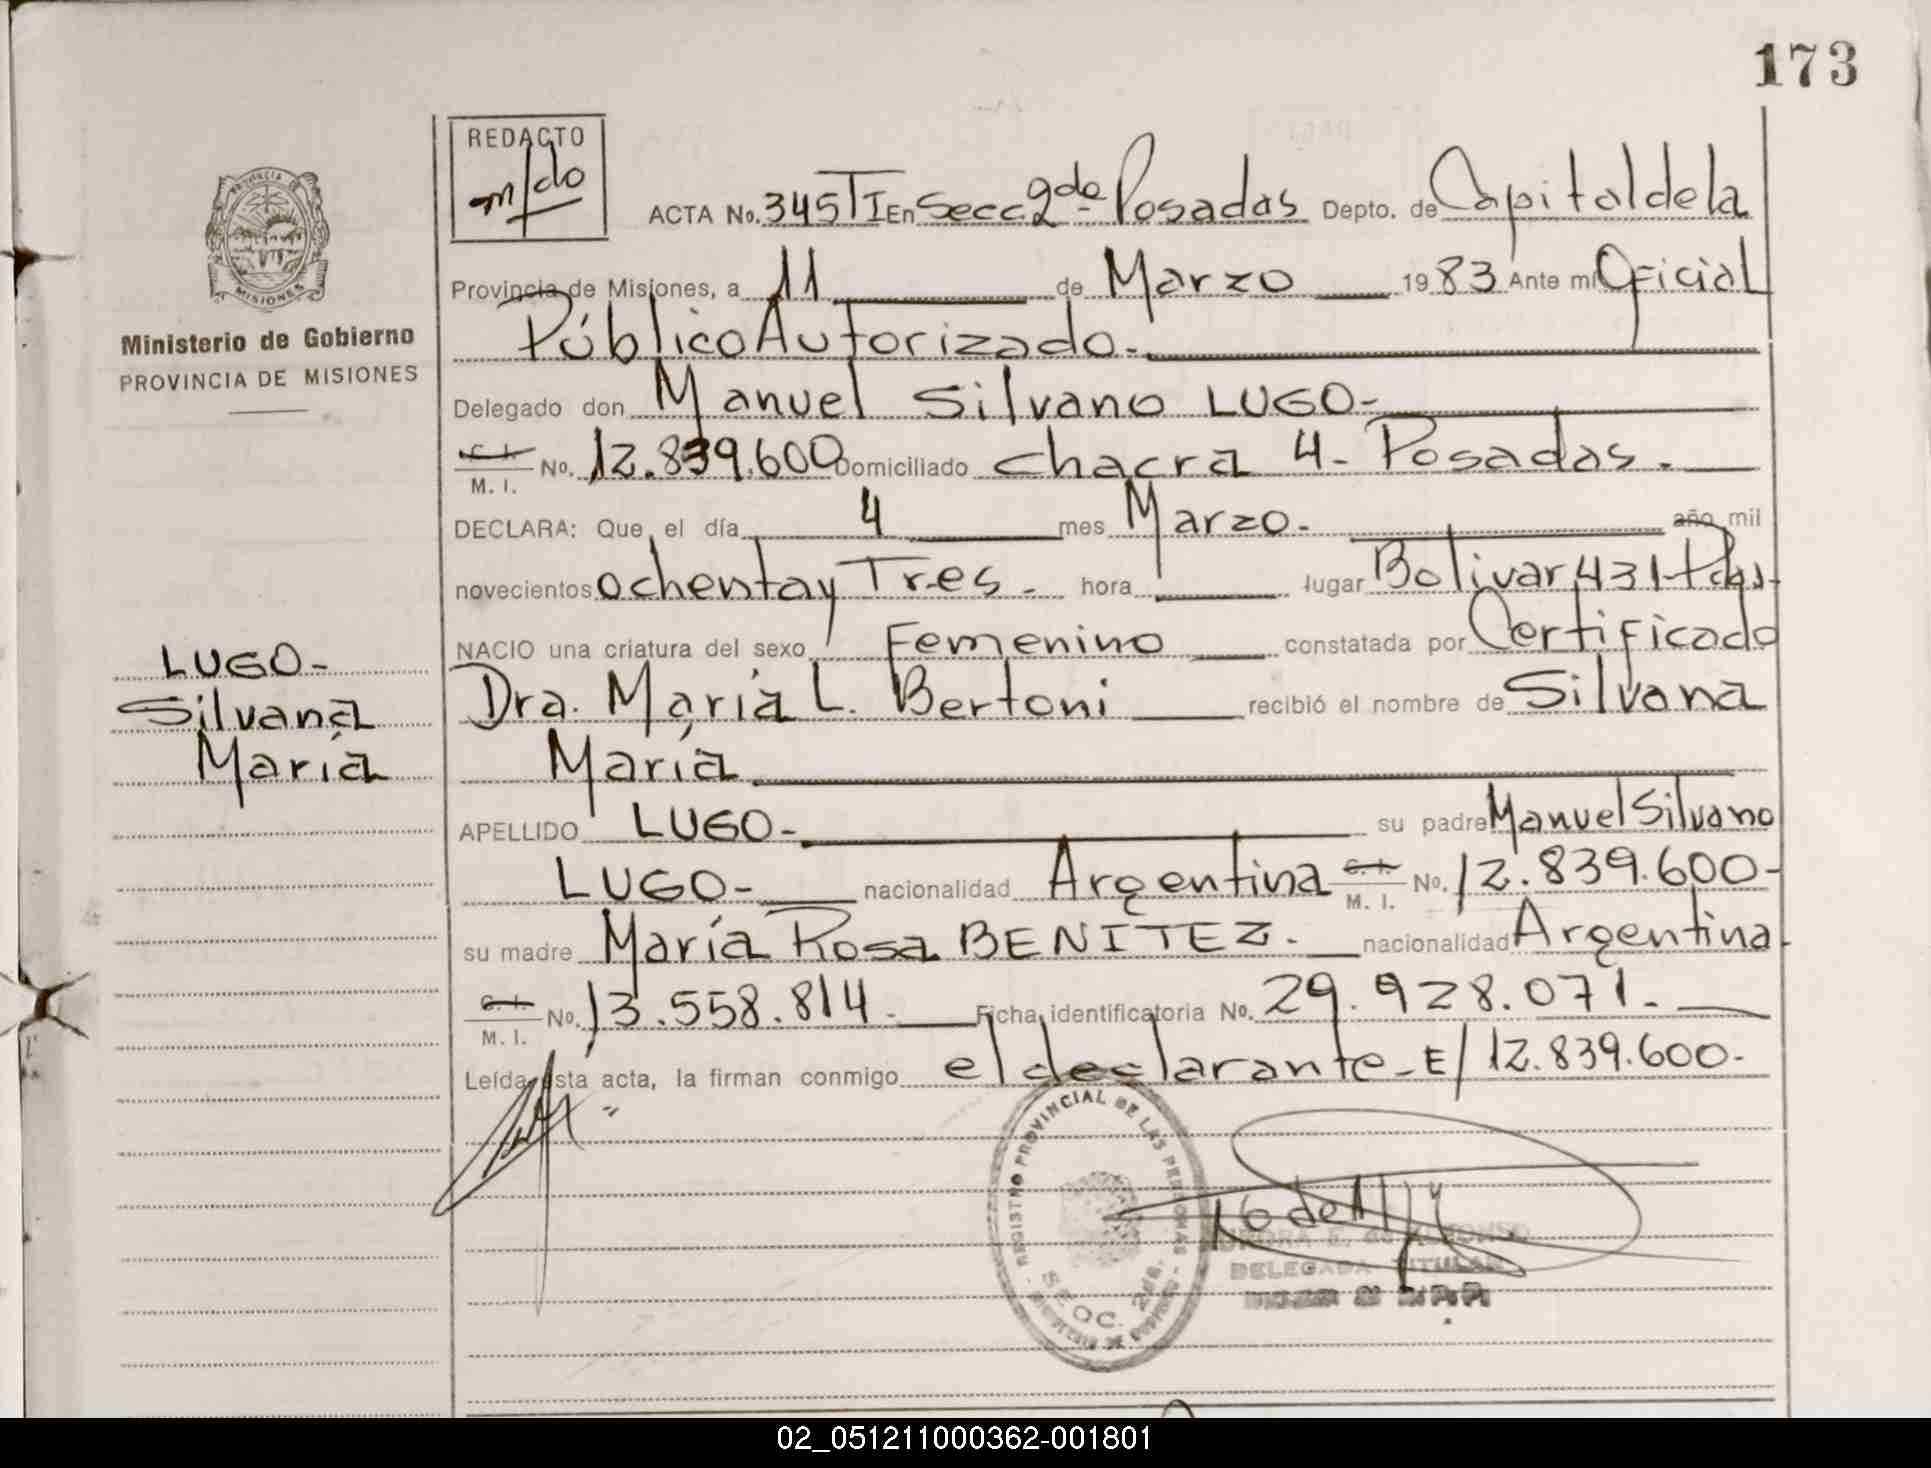 173
REDACTO
m/do
ACTA No. 345 TI En Secc. 2da Posadas Depto. de Capital de la
Provincia de Misiones, a 11 de Marzo 1983 Ante mí Oficial
Público Autorizado.-
Delegado don Manuel Silvano LUGO-
C. I. M. I. No. 12.839.600 Domiciliado chacra 4- Posadas.
DECLARA: Que el día 4 mes Marzo. año mil
novecientos ochenta y Tres. hora lugar Bolivar 431-Pdas-
NACIO una criatura del sexo Femenino constatada por Certificado
Dra. María L. Bertoni recibió el nombre de Silvana
María
APELLIDO LUGO- su padre Manuel Silvano
LUGO- nacionalidad Argentina C. I. M. I. No. 12.839.600-
su madre María Rosa BENITEZ. nacionalidad Argentina
C. I. M. I. No. 13.558.814. Ficha identificatoria No. 29.928.071.
Leída esta acta, la firman conmigo el declarante-E/12.839.600-
PROVINCIA DE
MISIONES
Ministerio de Gobierno
PROVINCIA DE MISIONES
LUGO-
Silvana
María
REGISTRO PROVINCIAL DE LAS PERSONAS
SECC. 2da.
DELEGADA TITULAR
02_051211000362-001801